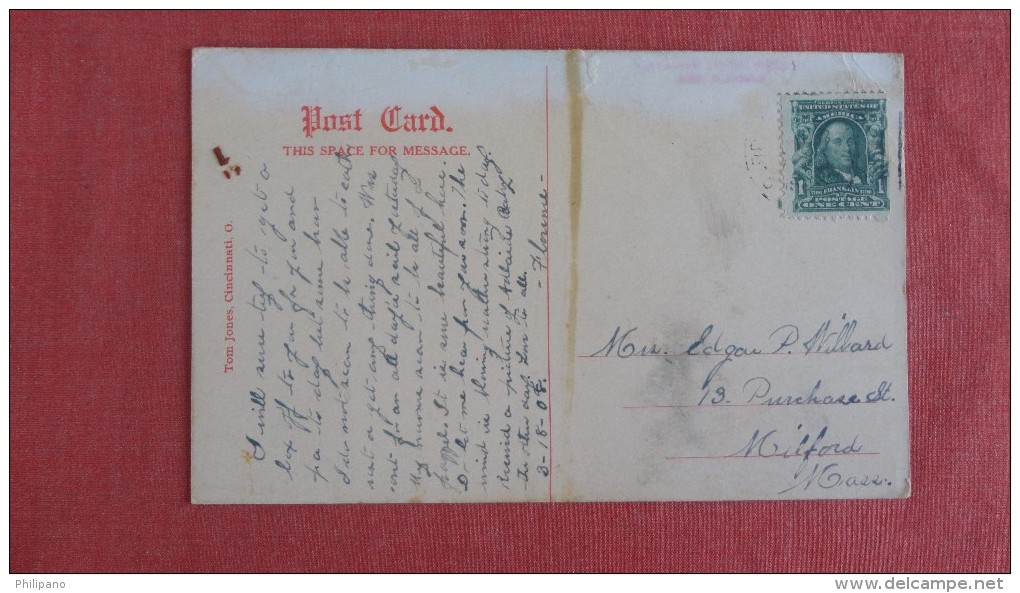 Post Card.
THIS SPACE FOR MESSAGE.
Tom Jones, Cincinnati, O.
I will sure try to get a
box off to you for you and
pa to day but some how
I do not seem to be able to
get any thing done. Was
out for an all day's sail Saturday
My home seem to be all
happy. It is sure beautiful here.
let me hear from you soon. The
wind is blowing to day.
Received a picture of Adlaide Baby
the other day. Love to all.
3-18-08. - Florence -
UNITED STATES OF
AMERICA
1 FRANKLIN 1
POSTAGE
ONE CENT
Mrs. Edgar P. Willard
13. Purchase St.
Milford
Mass.
Philipano
www.delcampe.net